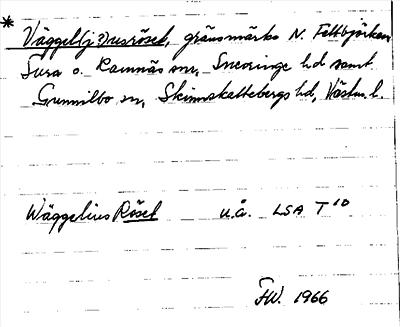 * Väggel(j?)usröset, gränsmärke N. Fettbjörken
Sura o. Ramnäs snr, Snevringe hd samt
Gunnilbo sn, Skinnskattebergs hd, Västm. l.
Wäggelius Röset u.å. LSA T 10
FW. 1966